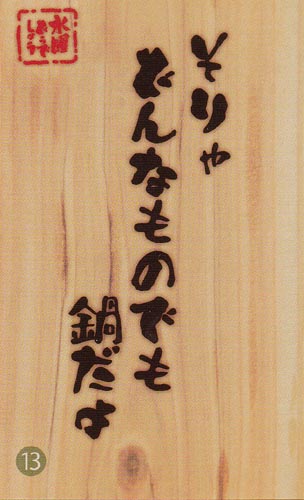 そりゃ
どんなものでも
鍋だよ
水曜
どうで
しょう
13